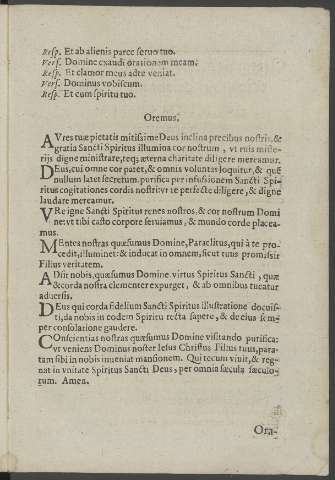 Resp. Et ab alienis parce seruo tuo.
Vers. Domine exaudi orationem meam.
Resp. Et clamor meus ad te veniat.
Vers. Dominus vobiscum.
Resp. Et cum spiritu tuo.
Oremus.
AVres tuæ pietatis mitissime Deus inclina precibus nostris, &
gratia Sancti Spiritus illumina cor nostrum, vt tuis miste-
rijs digne ministrare, teq; æterna charitate diligere mereamur.
DEus, cui omne cor patet, & omnis voluntas loquitur, & quē
nullum latet secretum, purifica per infusionem Sancti Spi-
ritus cogitationes cordis nostri vt te perfecte diligere, & digne
laudare mereamur.
VRe igne Sancti Spiritus renes nostros, & cor nostrum Domi
ne: vt tibi casto corpore seruiamus, & mundo corde placea-
mus.
MEntes nostras quæsumus Domine, Paraclitus, qui à te pro-
cedit, illuminet: & inducat in omnem, sicut tuus promisit
Filius veritatem.
ADsit nobis, quæsumus Domine, virtus Spiritus Sancti, quæ
& corda nostra clementer expurget, & ab omnibus tueatur
aduersis.
DEus qui corda fidelium Sancti Spiritus illustratione docuis-
ti, da nobis in eodem Spiritu recta sapere, & de eius sem
per consolatione gaudere.
COnscientias nostras quæsumus Domine visitando purifica:
vt veniens Dominus noster Iesus Christus Filius tuus, para-
tam sibi in nobis inueniat mansionem. Qui tecum viuit, & reg-
nat in vnitate Spiritus Sancti Deus, per omnia sæcula sæculo-
rum. Amen.
Ora-